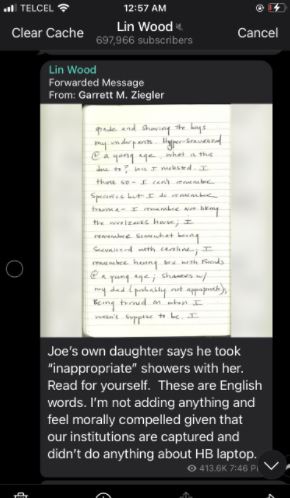 TELCEL
12:57 AM
Clear Cache
Lin Wood
697,966 subscribers
Cancel
Lin Wood
Forwarded Message
From: Garrett M. Ziegler
grade and showing the boys
my underpants. Hyper-sexualized
@ a young age. what is this
due to? Was I molested. I
think so - I can't remember
specifics but I do remember
trauma - I remember not liking
the house; I
remember somewhat being
sexualized with caroline; I
remember having sex with friends
@ a young age; showers w/
my dad (probably not appropriate).
Being turned on when I
wasn't suppose to be. I
Joe's own daughter says he took
"inappropriate" showers with her.
Read for yourself.  These are English
words. I'm not adding anything and
feel morally compelled given that
our institutions are captured and
didn't do anything about HB laptop.
413.6K 7:46 P